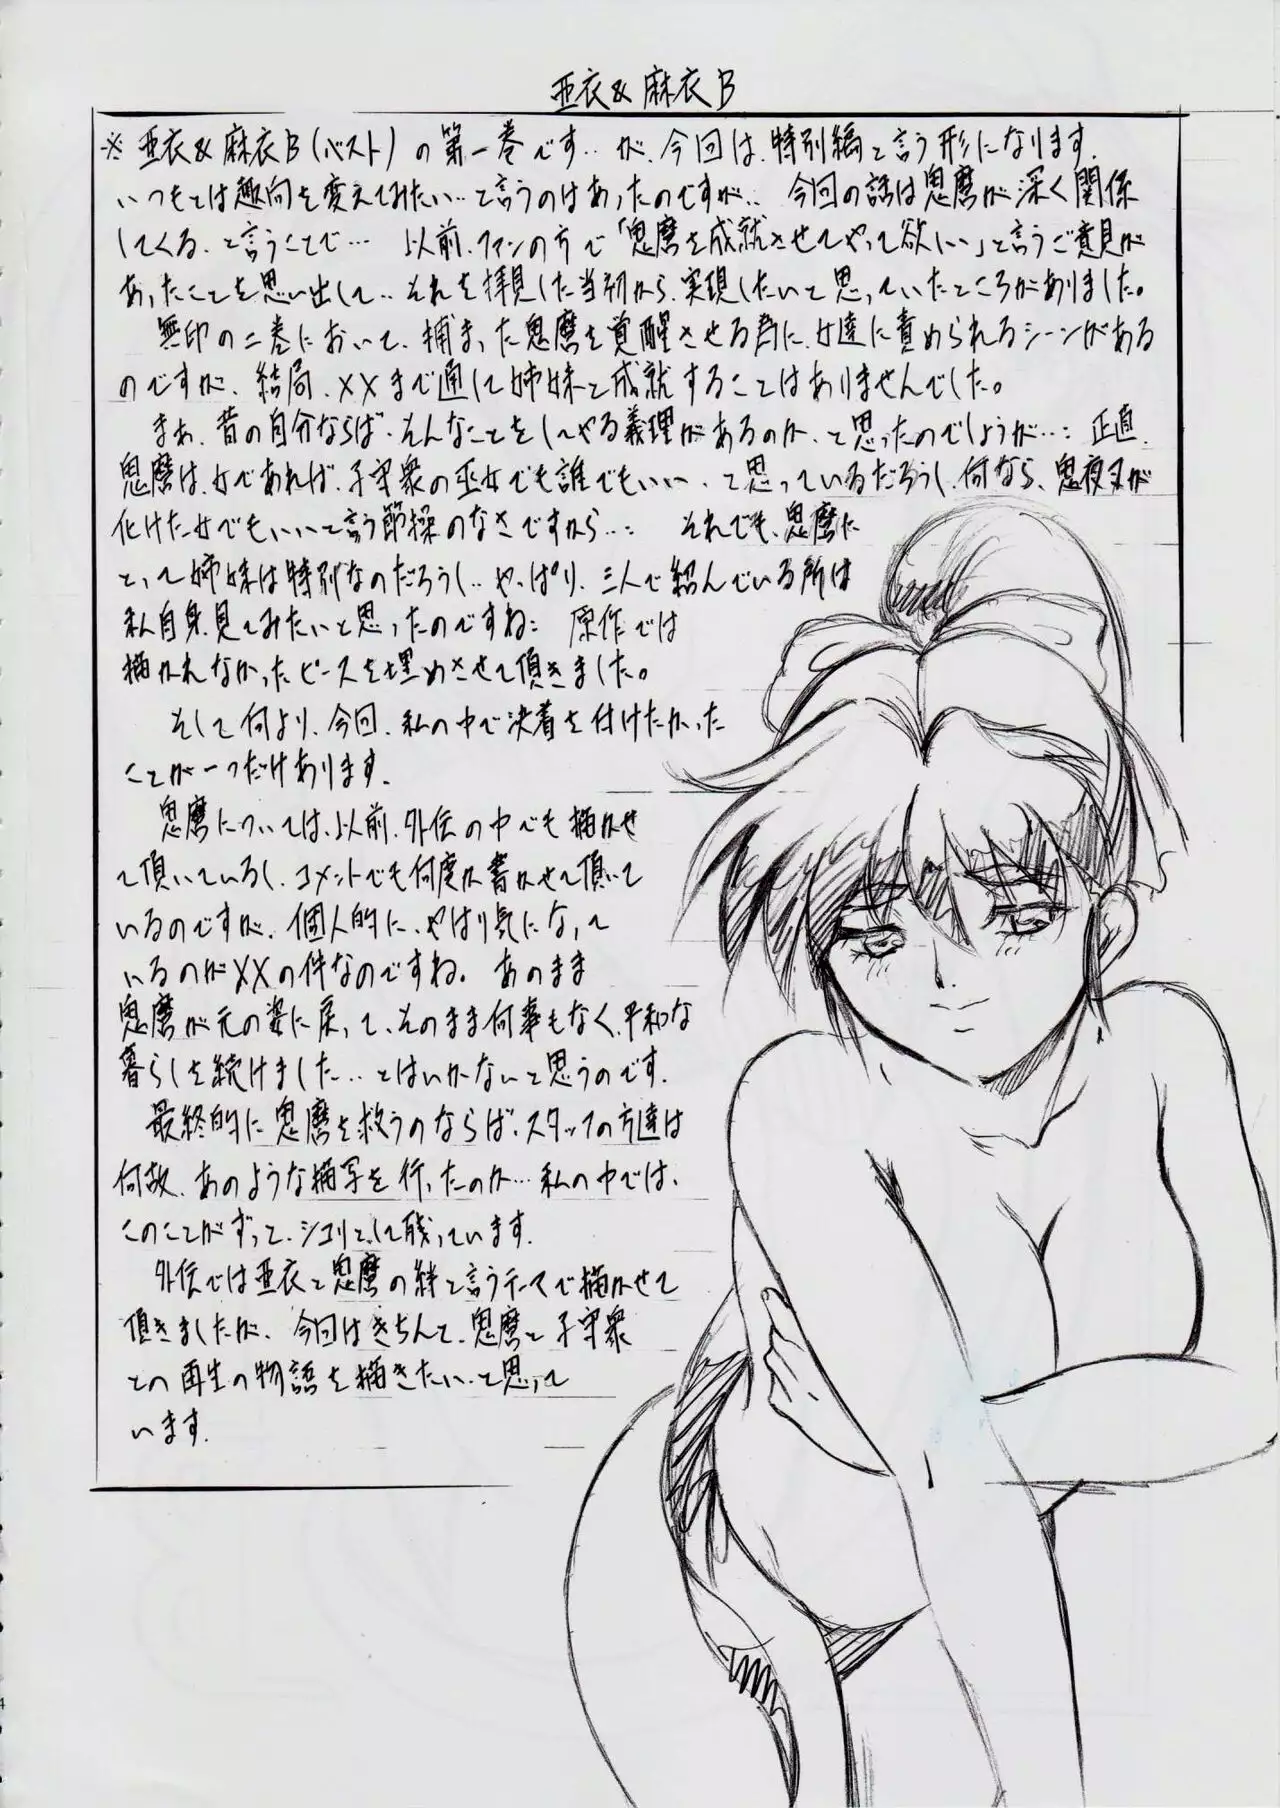 亜衣&麻衣B
※ 亜衣&麻衣B(ベスト)の第一巻です‥が、今回は、特別編と言う形になります。
いつもとは趣向を変えてみたい‥と言うのはあったのですが‥ 今回の話は鬼麿が深く関係
してくる、と言うことで… 以前、ファンの方で「鬼麿を成就させてやって欲しい」と言うご意見が
あったことを思い出して‥それを拝見した当初から、実現したいと思っていたところがありました。
無印の二巻において、捕まった鬼麿を覚醒させる為に、女達に責められるシーンがある
のですが、結局、××まで通して姉妹と成就することはありませんでした。
まあ、昔の自分ならば、そんなことをしてやる義理があるのか、と思ったのでしょうが…: 正直、
鬼麿は、女であれば、子守衆の巫女でも誰でもいい、と思っているだろうし、何なら、鬼夜叉が
化けた女でもいいと言う節操のなさですから…: それでも、鬼麿に
とって姉妹は特別なのだろうし‥やっぱり、三人で絡んでいる所は
私自身、見てみたいと思ったのですね: 原作では
描かれなかったピースを埋めさせて頂きました。
そして何より、今回、私の中で決着を付けたかった
ことが一つだけあります。
鬼麿については、以前、外伝の中でも描かせ
て頂いているし、コメントでも何度か書かせて頂いて
いるのですが、個人的に、やはり気になって
いるのが××の件なのですね。あのまま
鬼麿が元の姿に戻って、そのまま何事もなく、平和な
暮らしを続けました‥とはいかないと思うのです。
最終的に鬼麿を救うのならば、スタッフの方達は
何故、あのような描写を行ったのか…私の中では、
このことがずっと、シコリとして残っています。
外伝では亜衣と鬼麿の絆と言うテーマで描かせて
頂きましたが、今回はきちんと、鬼麿と子守衆
との再生の物語を描きたい‥と思って
います。
4